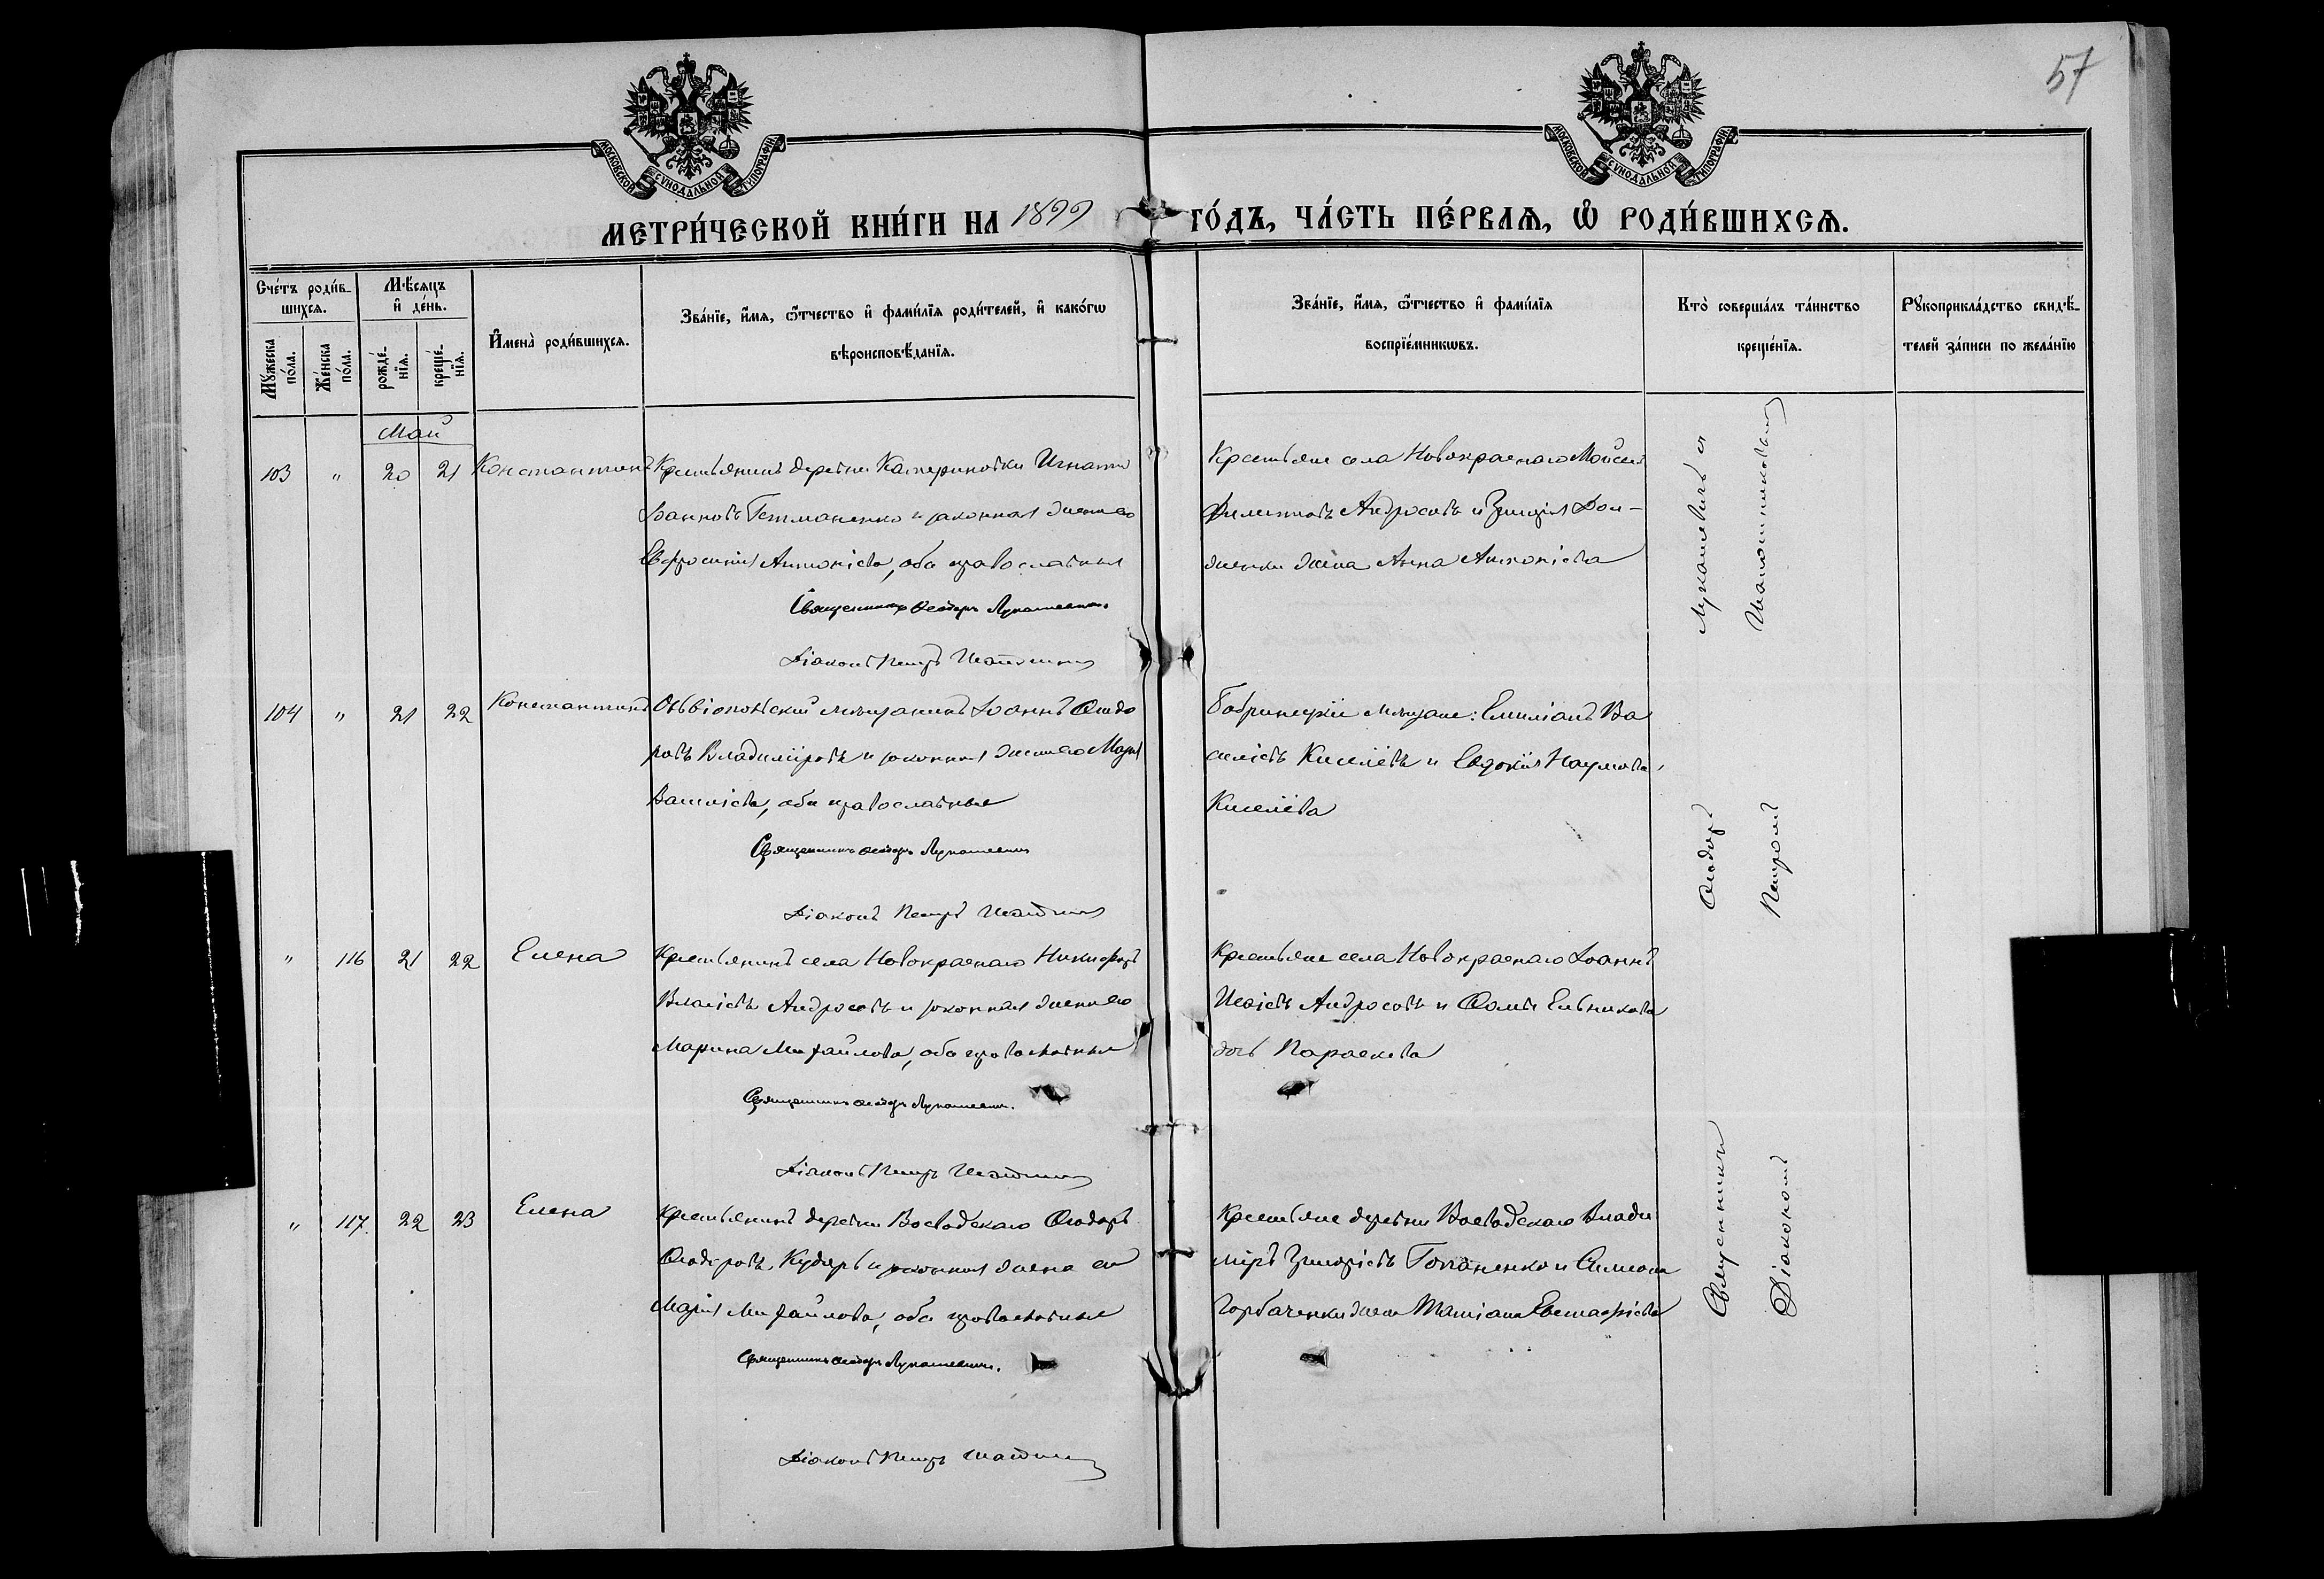 57
МОСКОВСКОЙ СУНОДАЛЬНОЙ ТИПОГРАФІИ
МОСКОВСКОЙ СУНОДАЛЬНОЙ ТИПОГРАФІИ
МЕТРИ́ЧЕСКОЙ КНИ́ГИ НА 1899 ГО́ДЪ, ЧА́СТЬ ПЕ́РВАѦ, Ѽ РОДИ́ВШИХСѦ.
Сче́тъ роди́в-
шихсѧ.
Мꙋ́жеска по́ла.
Же́нска по́ла.
Мѣ́сѧцъ
и҆ де́нь.
рожде́-нїѧ.
креще́-нїѧ.
И҆мена̀ роди́вшихсѧ.
Зва́нїе, и҆́мѧ, ѻ҆́тчество и҆ фами́лїѧ роди́телей, и҆ како́гѡ
вѣроисповѣ́данїѧ.
Зва́нїе, и҆́мѧ, ѻ҆́тчество и҆ фами́лїѧ
воспрїе́мникѡвъ.
Кто̀ соверша́лъ та́инство
креще́нїѧ.
Рꙋкоприкла́дство свидѣ́-
телей за́писи по жела́нїю
Май
103 " 20 21 Константинъ Крестьянинъ деревни Катериновки Игнатій
Іоанновъ Гетманенко и законная жена его
Евфросинія Антоніева, оба православные
Священникъ Ѳеодоръ Лукашевичъ.
Діаконъ Петръ
Крестьяне села Новокраснаго Моисей
Филиповъ Андросовъ и
женки жена Анна Антоніева
104 " 21 22 Константинъ Ольвіопольскій мѣщанинъ Іоаннъ Ѳеодо
ровъ Владиміровъ и законная жена его Марія
Василіева, оба православные
Священникъ Ѳеодоръ Лукашевичъ
Діаконъ Петръ
Бобринецкіе мѣщане: Емиліанъ Ва
силіевъ Киселёвъ и Евдокія Наумова
Киселёва
" 116 21 22 Елена Крестьянинъ села Новокраснаго Никифоръ
Власіевъ Андросовъ и законная жена его
Марина Михайлова, оба православные
Священникъ Ѳеодоръ Лукашевичъ.
Діаконъ Петръ
Крестьяне села Новокраснаго Іоаннъ
Исаіевъ Андросовъ и Ѳомы Ельникова
дочь Параскева
" 117 22 23 Елена Крестьянинъ деревни Воеводскаго Ѳеодоръ
Ѳеодоровъ Кударь и законная жена его
Марія Михайлова, оба православные
Священникъ Ѳеодоръ Лукашевичъ.
Діаконъ Петръ
Крестьяне деревни Воеводскаго Влади
міръ Григоріевъ и Симеона
Горбаченки жена Татіана Евстафіева
Священникъ Ѳеодоръ Лукашевичъ съ
Діакономъ Петромъ